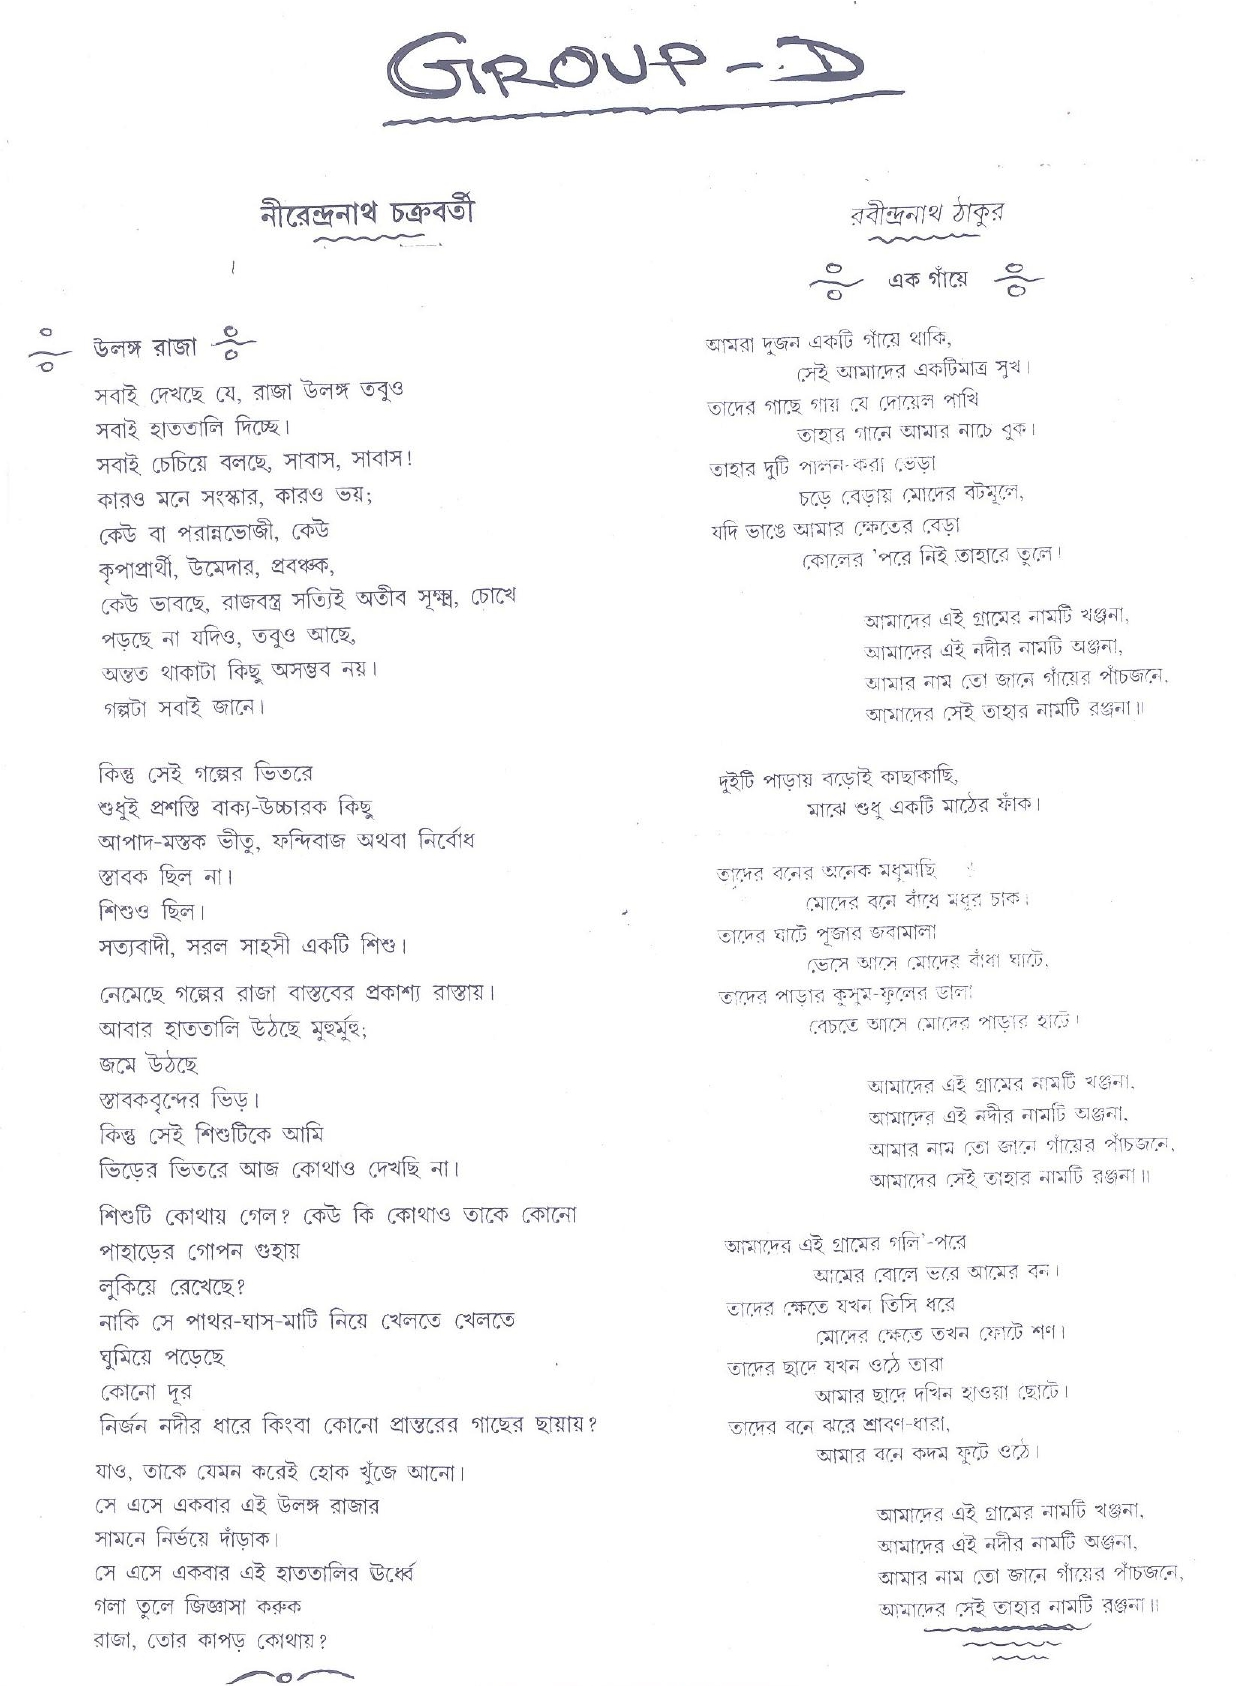 GROUP - D
নীরেন্দ্রনাথ চক্রবর্তী
উলঙ্গ রাজা
সবাই দেখছে যে, রাজা উলঙ্গ তবুও
সবাই হাততালি দিচ্ছে।
সবাই চেচিয়ে বলছে, সাবাস, সাবাস!
কারও মনে সংস্কার, কারও ভয়;
কেউ বা পরান্নভোজী, কেউ
কৃপাপ্রার্থী, উমেদার, প্রবঞ্চক,
কেউ ভাবছে, রাজবস্ত্র সত্যিই অতীব সূক্ষ্ম, চোখে
পড়ছে না যদিও, তবুও আছে,
অন্তত থাকাটা কিছু অসম্ভব নয়।
গল্পটা সবাই জানে।
কিন্তু সেই গল্পের ভিতরে
শুধুই প্রশস্তি বাক্য-উচ্চারক কিছু
আপাদ-মস্তক ভীতু, ফন্দিবাজ অথবা নির্বোধ
স্তাবক ছিল না।
শিশুও ছিল।
সত্যবাদী, সরল সাহসী একটি শিশু।
নেমেছে গল্পের রাজা বাস্তবের প্রকাশ্য রাস্তায়।
আবার হাততালি উঠছে মুহুর্মুহু;
জমে উঠছে
স্তাবকবৃন্দের ভিড়।
কিন্তু সেই শিশুটিকে আমি
ভিড়ের ভিতরে আজ কোথাও দেখছি না।
শিশুটি কোথায় গেল? কেউ কি কোথাও তাকে কোনো
পাহাড়ের গোপন গুহায়
লুকিয়ে রেখেছে?
নাকি সে পাথর-ঘাস-মাটি নিয়ে খেলতে খেলতে
ঘুমিয়ে পড়েছে
কোনো দূর
নির্জন নদীর ধারে কিংবা কোনো প্রান্তরের গাছের ছায়ায়?
যাও, তাকে যেমন করেই হোক খুঁজে আনো।
সে এসে একবার এই উলঙ্গ রাজার
সামনে নির্ভয়ে দাঁড়াক।
সে এসে একবার এই হাততালির ঊর্ধ্বে
গলা তুলে জিজ্ঞাসা করুক
রাজা, তোর কাপড় কোথায়?
রবীন্দ্রনাথ ঠাকুর
এক গাঁয়ে
আমরা দুজন একটি গাঁয়ে থাকি,
সেই আমাদের একটিমাত্র সুখ।
তাদের গাছে গায় যে দোয়েল পাখি
তাহার গানে আমার নাচে বুক।
তাহার দুটি পালন-করা ভেড়া
চড়ে বেড়ায় মোদের বটমূলে,
যদি ভাঙে আমার ক্ষেতের বেড়া
কোলের 'পরে নিই তাহারে তুলে।
আমাদের এই গ্রামের নামটি খঞ্জনা,
আমাদের এই নদীর নামটি অঞ্জনা,
আমার নাম তো জানে গাঁয়ের পাঁচজনে,
আমাদের সেই তাহার নামটি রঞ্জনা॥
দুইটি পাড়ায় বড়োই কাছাকাছি,
মাঝে শুধু একটি মাঠের ফাঁক।
তাদের বনের অনেক মধুমাছি
মোদের বনে বাঁধে মধুর চাক।
তাদের ঘাটে পূজার জবামালা
ভেসে আসে মোদের বাঁধা ঘাটে,
তাদের পাড়ার কুসুম-ফুলের ডালা
বেচতে আসে মোদের পাড়ার হাটে।
আমাদের এই গ্রামের নামটি খঞ্জনা,
আমাদের এই নদীর নামটি অঞ্জনা,
আমার নাম তো জানে গাঁয়ের পাঁচজনে,
আমাদের সেই তাহার নামটি রঞ্জনা॥
আমাদের এই গ্রামের গলি'-পরে
আমের বোলে ভরে আমের বন।
তাদের ক্ষেতে যখন তিসি ধরে
মোদের ক্ষেতে তখন ফোটে শণ।
তাদের ছাদে যখন ওঠে তারা
আমার ছাদে দখিন হাওয়া ছোটে।
তাদের বনে ঝরে শ্রাবণ-ধারা,
আমার বনে কদম ফুটে ওঠে।
আমাদের এই গ্রামের নামটি খঞ্জনা,
আমাদের এই নদীর নামটি অঞ্জনা,
আমার নাম তো জানে গাঁয়ের পাঁচজনে,
আমাদের সেই তাহার নামটি রঞ্জনা॥